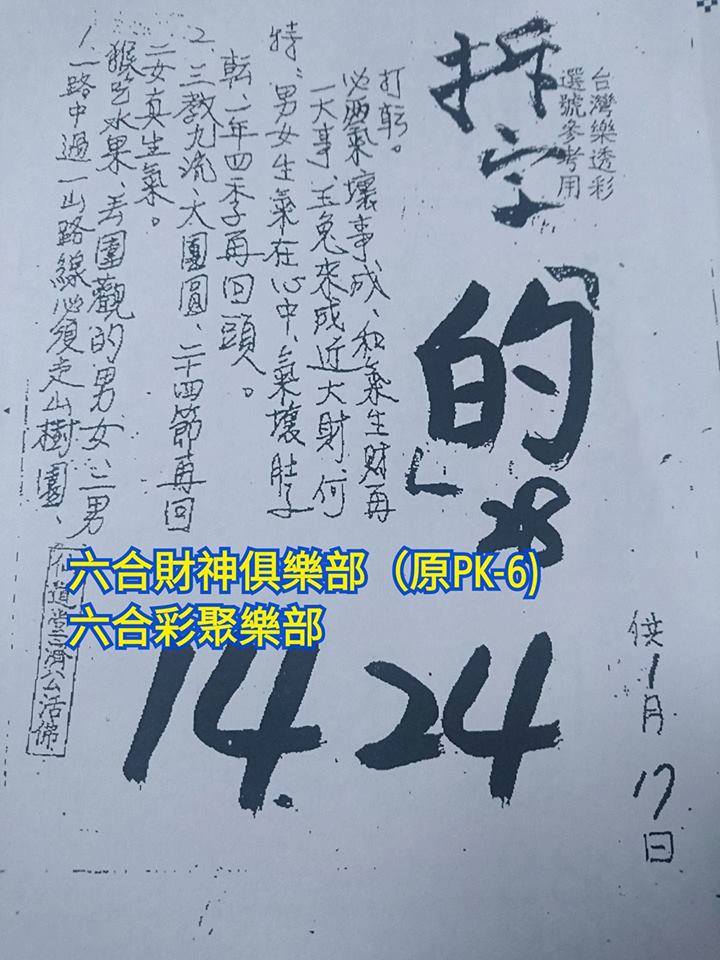 台灣樂透彩
選號參考用
拆字
「的」
28
14.24
供1月17日
1、一路中過一山路線必須走山樹園、
猴吃水果、去圍觀的男女、二男
二女真生氣。
2、三教九流、大團圓、二十四節再回
転、一年四季再回頭。
特:男女生氣在心中、氣壞肚子
一大事、玉兔來成近大財、何
必兩氣壞事成、和氣生財再
打転。
道堂三濟公活佛
六合財神俱樂部（原PK-6)
六合彩聚樂部